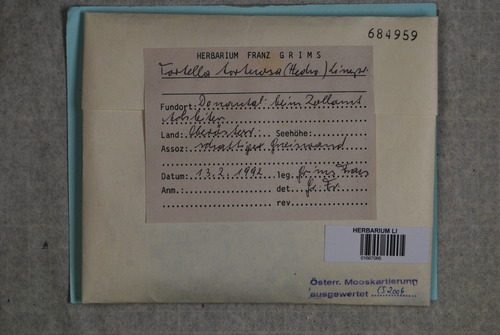 684959
HERBARIUM FRANZ GRIMS
Tortella tortuosa (Hedw.) Limpr.
Fundort: Donautal: beim Zollamt
Land: Oberösterr. Seehöhe:
Assoz: schattiger Gneiswand
Datum: 13.2.1992 leg. Grims Franz
Anm.: det. Gr. Fr.
rev.
HERBARIUM LI
Österr. Mooskartierung
ausgewertet CS 2006